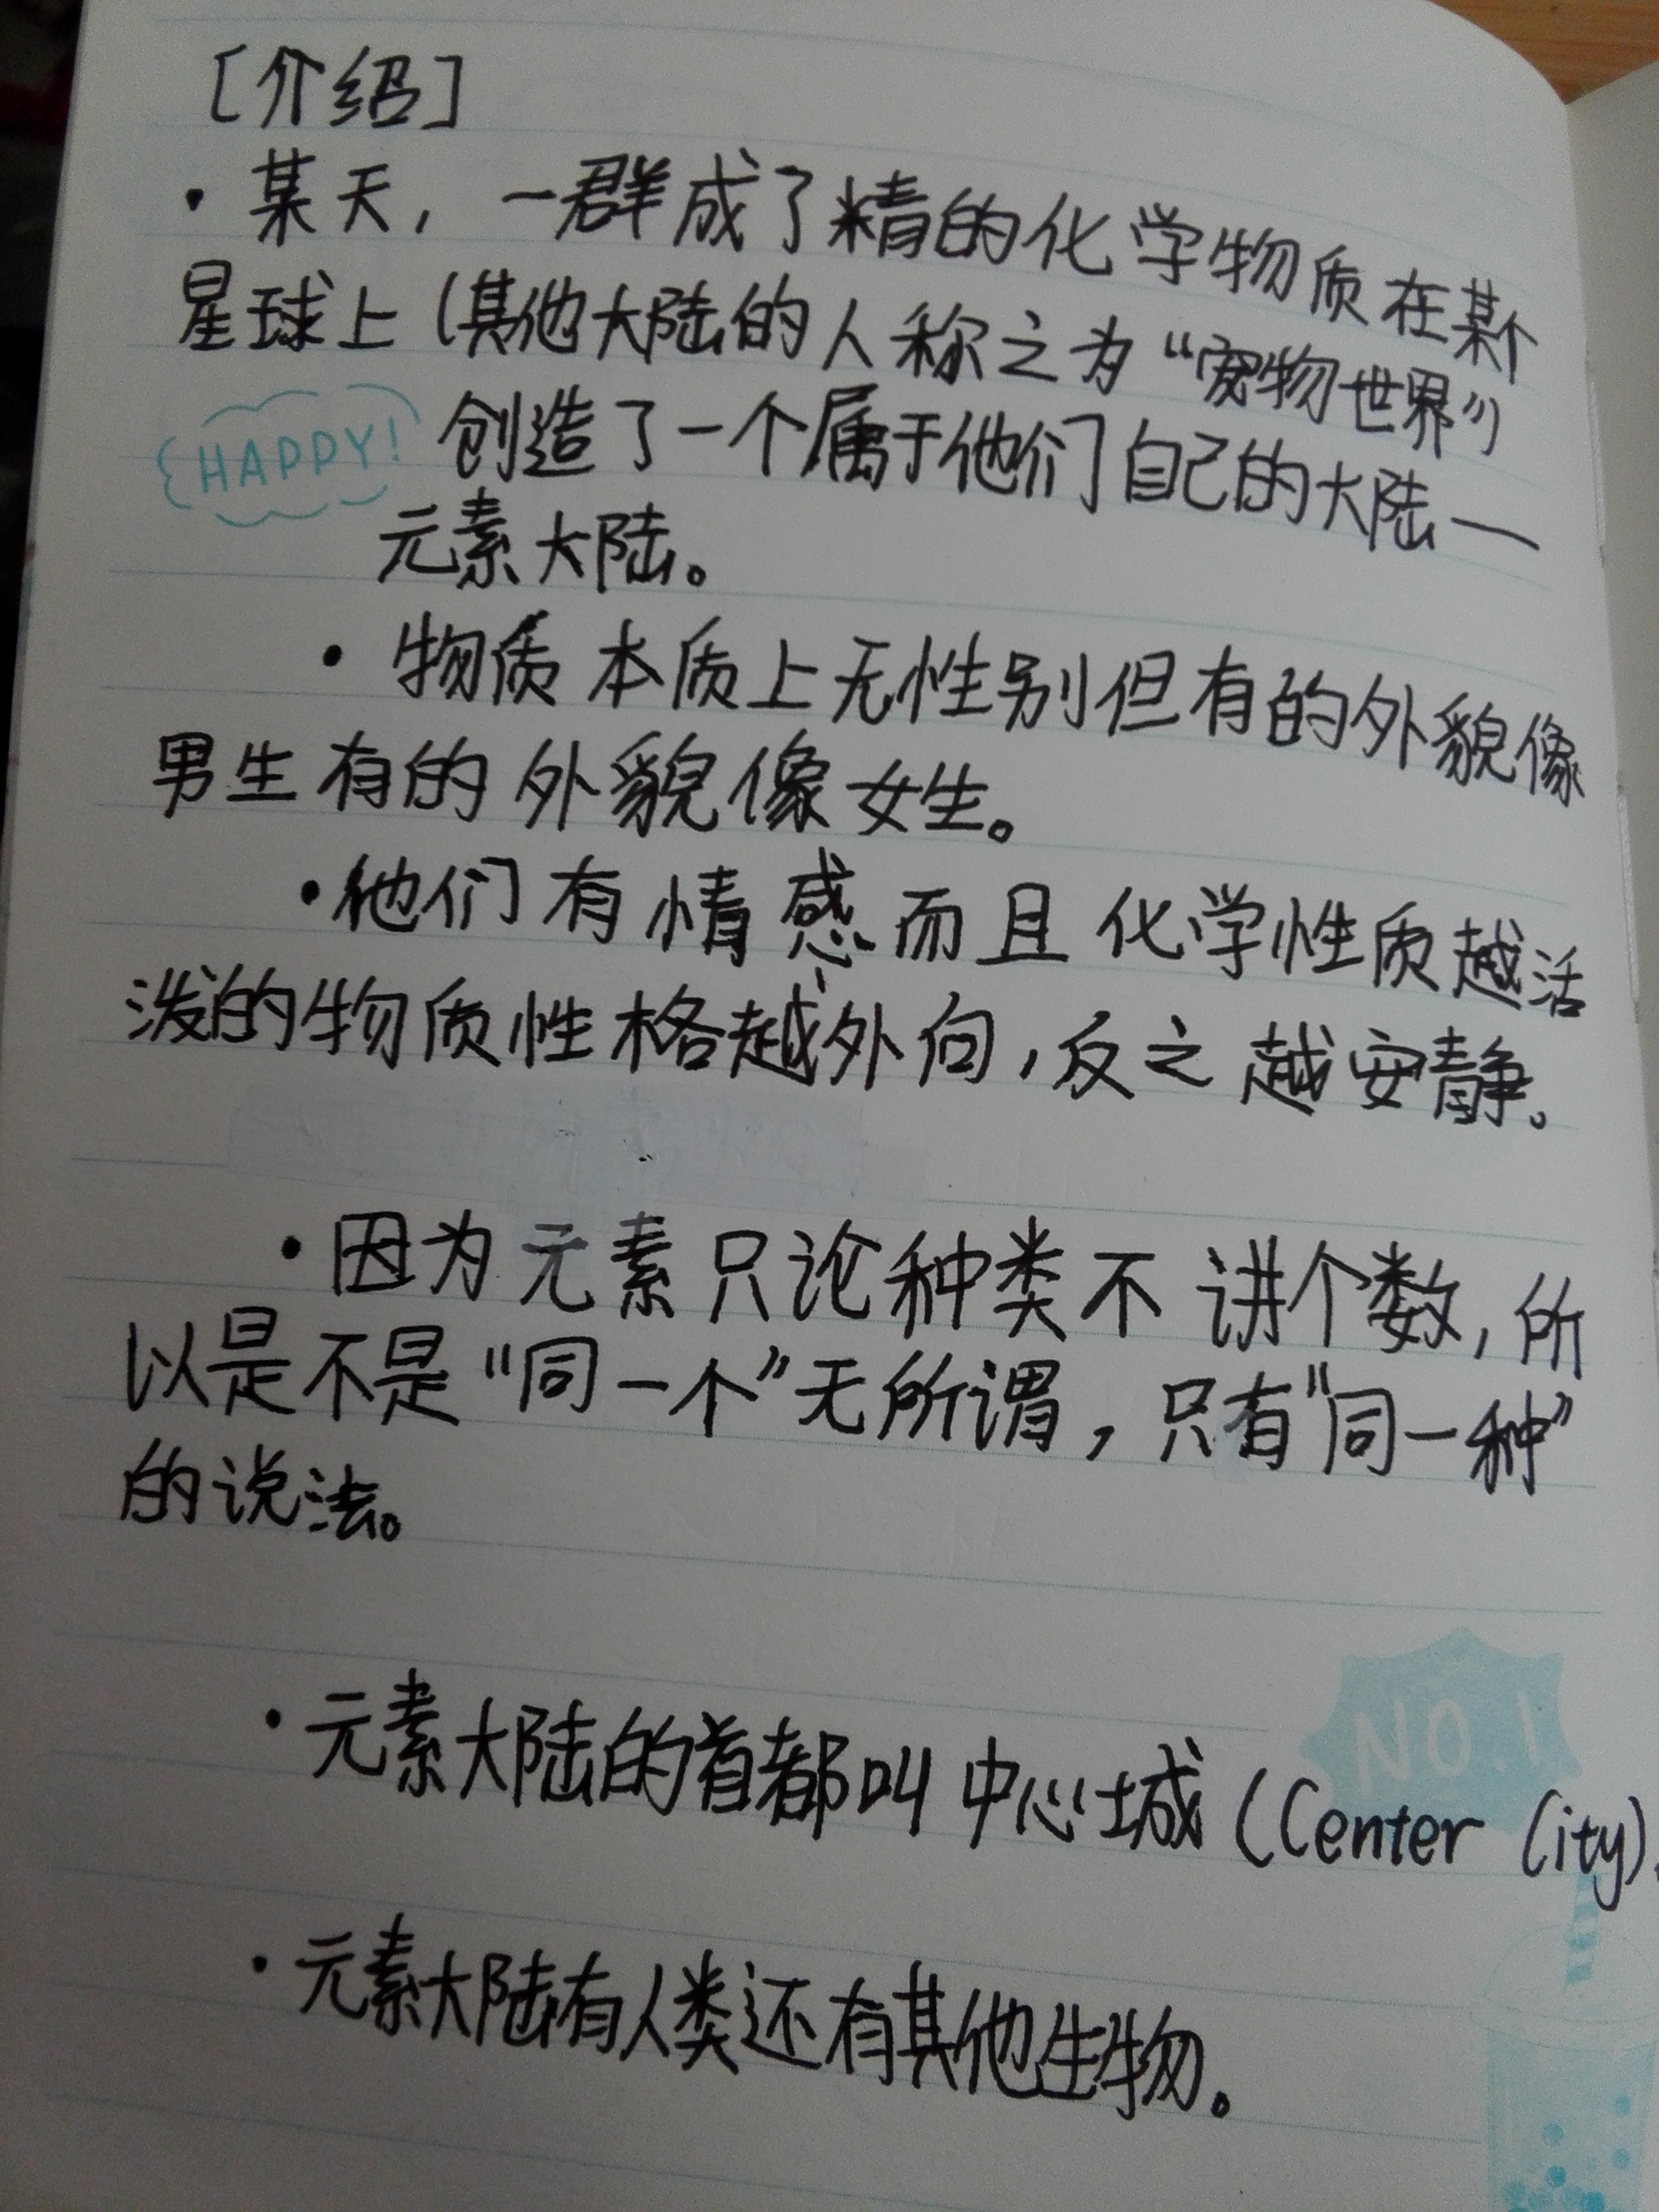 [介绍]
·某天，一群成了精的化学物质在某个
星球上(其他大陆的人称之为“宠物世界”)
HAPPY!
创造了一个属于他们自己的大陆—
元素大陆。
·物质本质上无性别但有的外貌像
男生有的外貌像女生。
·他们有情感而且化学性质越活
泼的物质性格越外向，反之越安静。
·因为元素只论种类不讲个数，所
以是不是“同一个”无所谓，只有“同一种”
的说法。
NO.1
·元素大陆的首都叫中心城(Center City).
·元素大陆有人类还有其他生物。